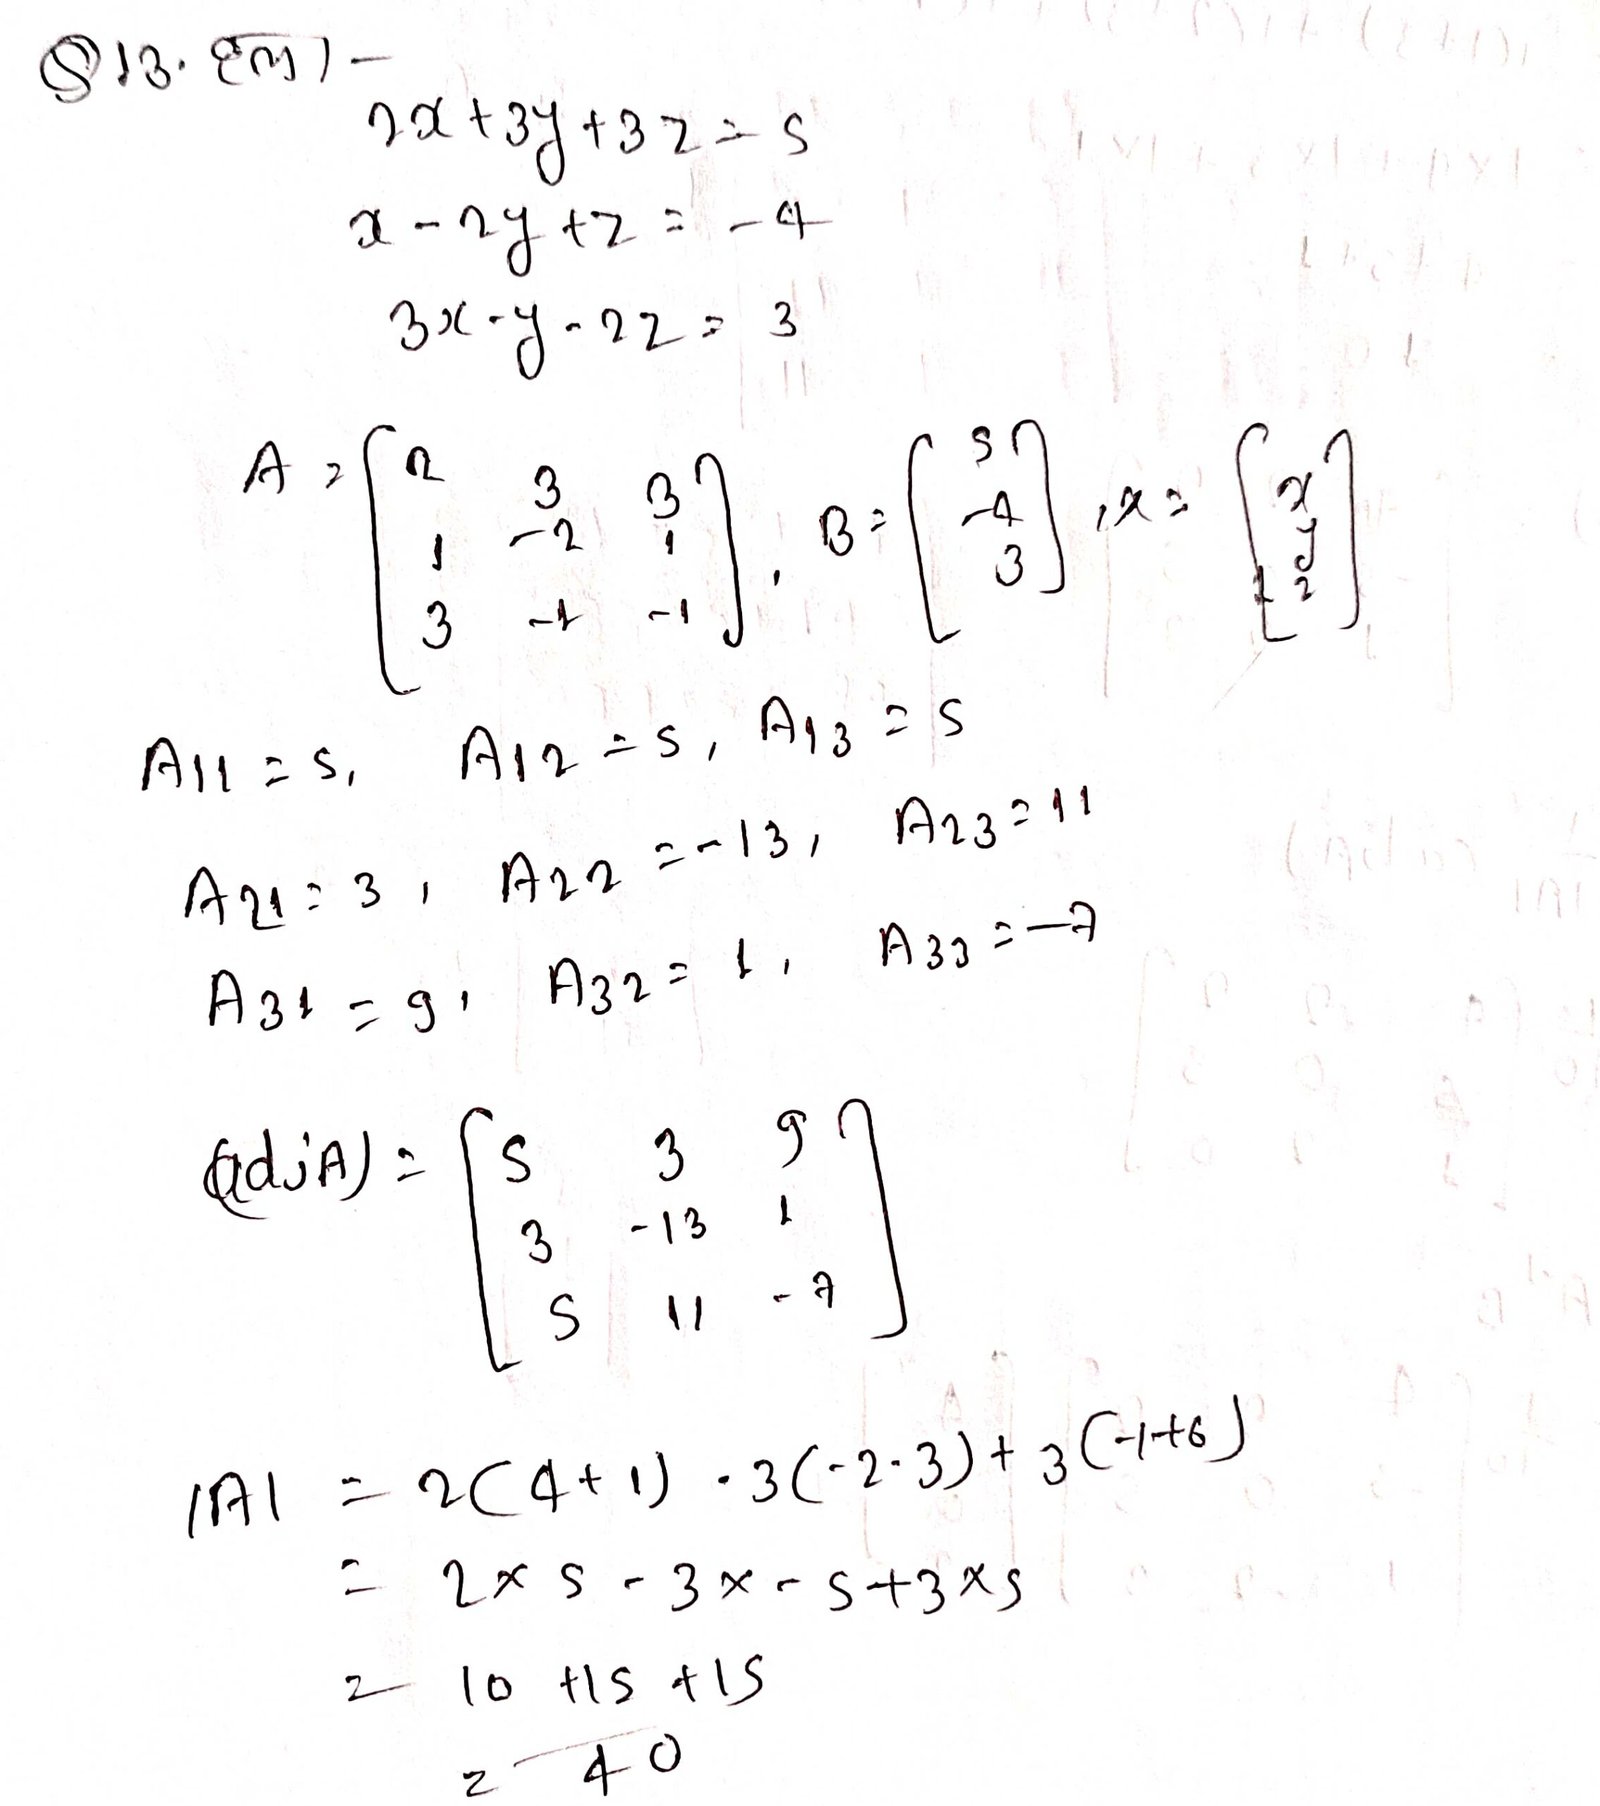 Q13. हल -
2x + 3y + 3z = 5
x - 2y + z = -4
3x - y - 2z = 3
A = [2 3 3
1 -2 1
3 -1 -1], B = [5
-4
3], x = [x
y
z]
A11 = 5, A12 = 5, A13 = 5
A21 = 3, A22 = -13, A23 = 11
A31 = 9, A32 = 1, A33 = -7
(adjA) = [5 3 9
3 -13 1
5 11 -7]
|A| = 2(4+1) - 3(-2-3) + 3(-1+6)
= 2×5 - 3×-5 + 3×5
= 10 +15 +15
= 40